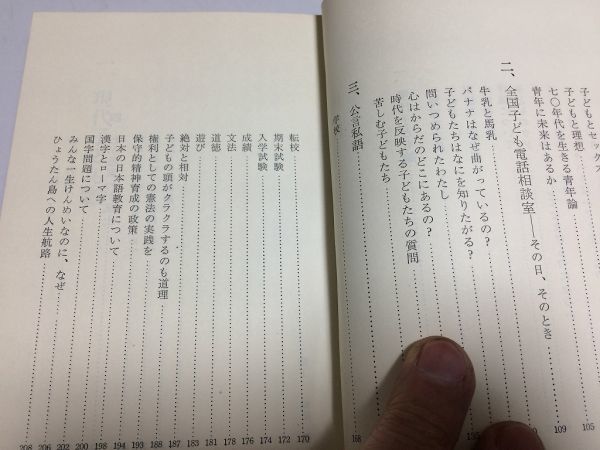 子どもとセックス
子どもと理想 105
七〇年代を生きる青年論 109
青年に未来はあるか
二、全国子ども電話相談室――その日、そのとき
牛乳と馬乳
バナナはなぜ曲がっているの? 135
子どもたちはなにを知りたがる?
問いつめられたわたし
心はからだのどこにあるの?
時代を反映する子どもたちの質問
苦しむ子どもたち
三、公言私語
学校 168
転校 170
期末試験 172
入学試験 174
成績 176
文法 178
道徳 181
遊び 183
絶対と相対 187
子どもの頭がクラクラするのも道理 188
権利としての憲法の実践を 193
保守的精神育成の政策 194
日本の日本語教育について 198
漢字とローマ字 200
国字問題について 202
みんな一生けんめいなのに、なぜ 206
ひょうたん島への人生航路 208